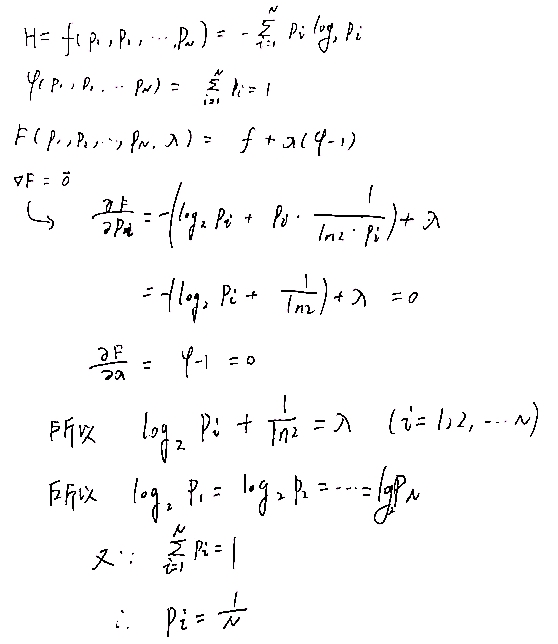 H = f(p₁, p₁, ⋯, p_N) = -∑_{i=1}^{N} pᵢ log₂ pᵢ
φ(p₁, p₂, ⋯ p_N) = ∑_{i=1}^{N} pᵢ = 1
F(p₁, p₂, ⋯, p_N, λ) = f + λ(φ-1)
∇F = 0⃗
↳ ∂F/∂pᵢ = -(log₂ pᵢ + pᵢ · 1/(ln2 · pᵢ)) + λ
= -(log₂ pᵢ + 1/ln2) + λ = 0
∂F/∂λ = φ-1 = 0
所以 log₂ pᵢ + 1/ln2 = λ (i = 1, 2, ⋯ N)
所以 log₂ p₁ = log₂ p₂ = ⋯ = lg₂ p_N
又∵ ∑_{i=1}^{N} pᵢ = 1
∴ pᵢ = 1/N